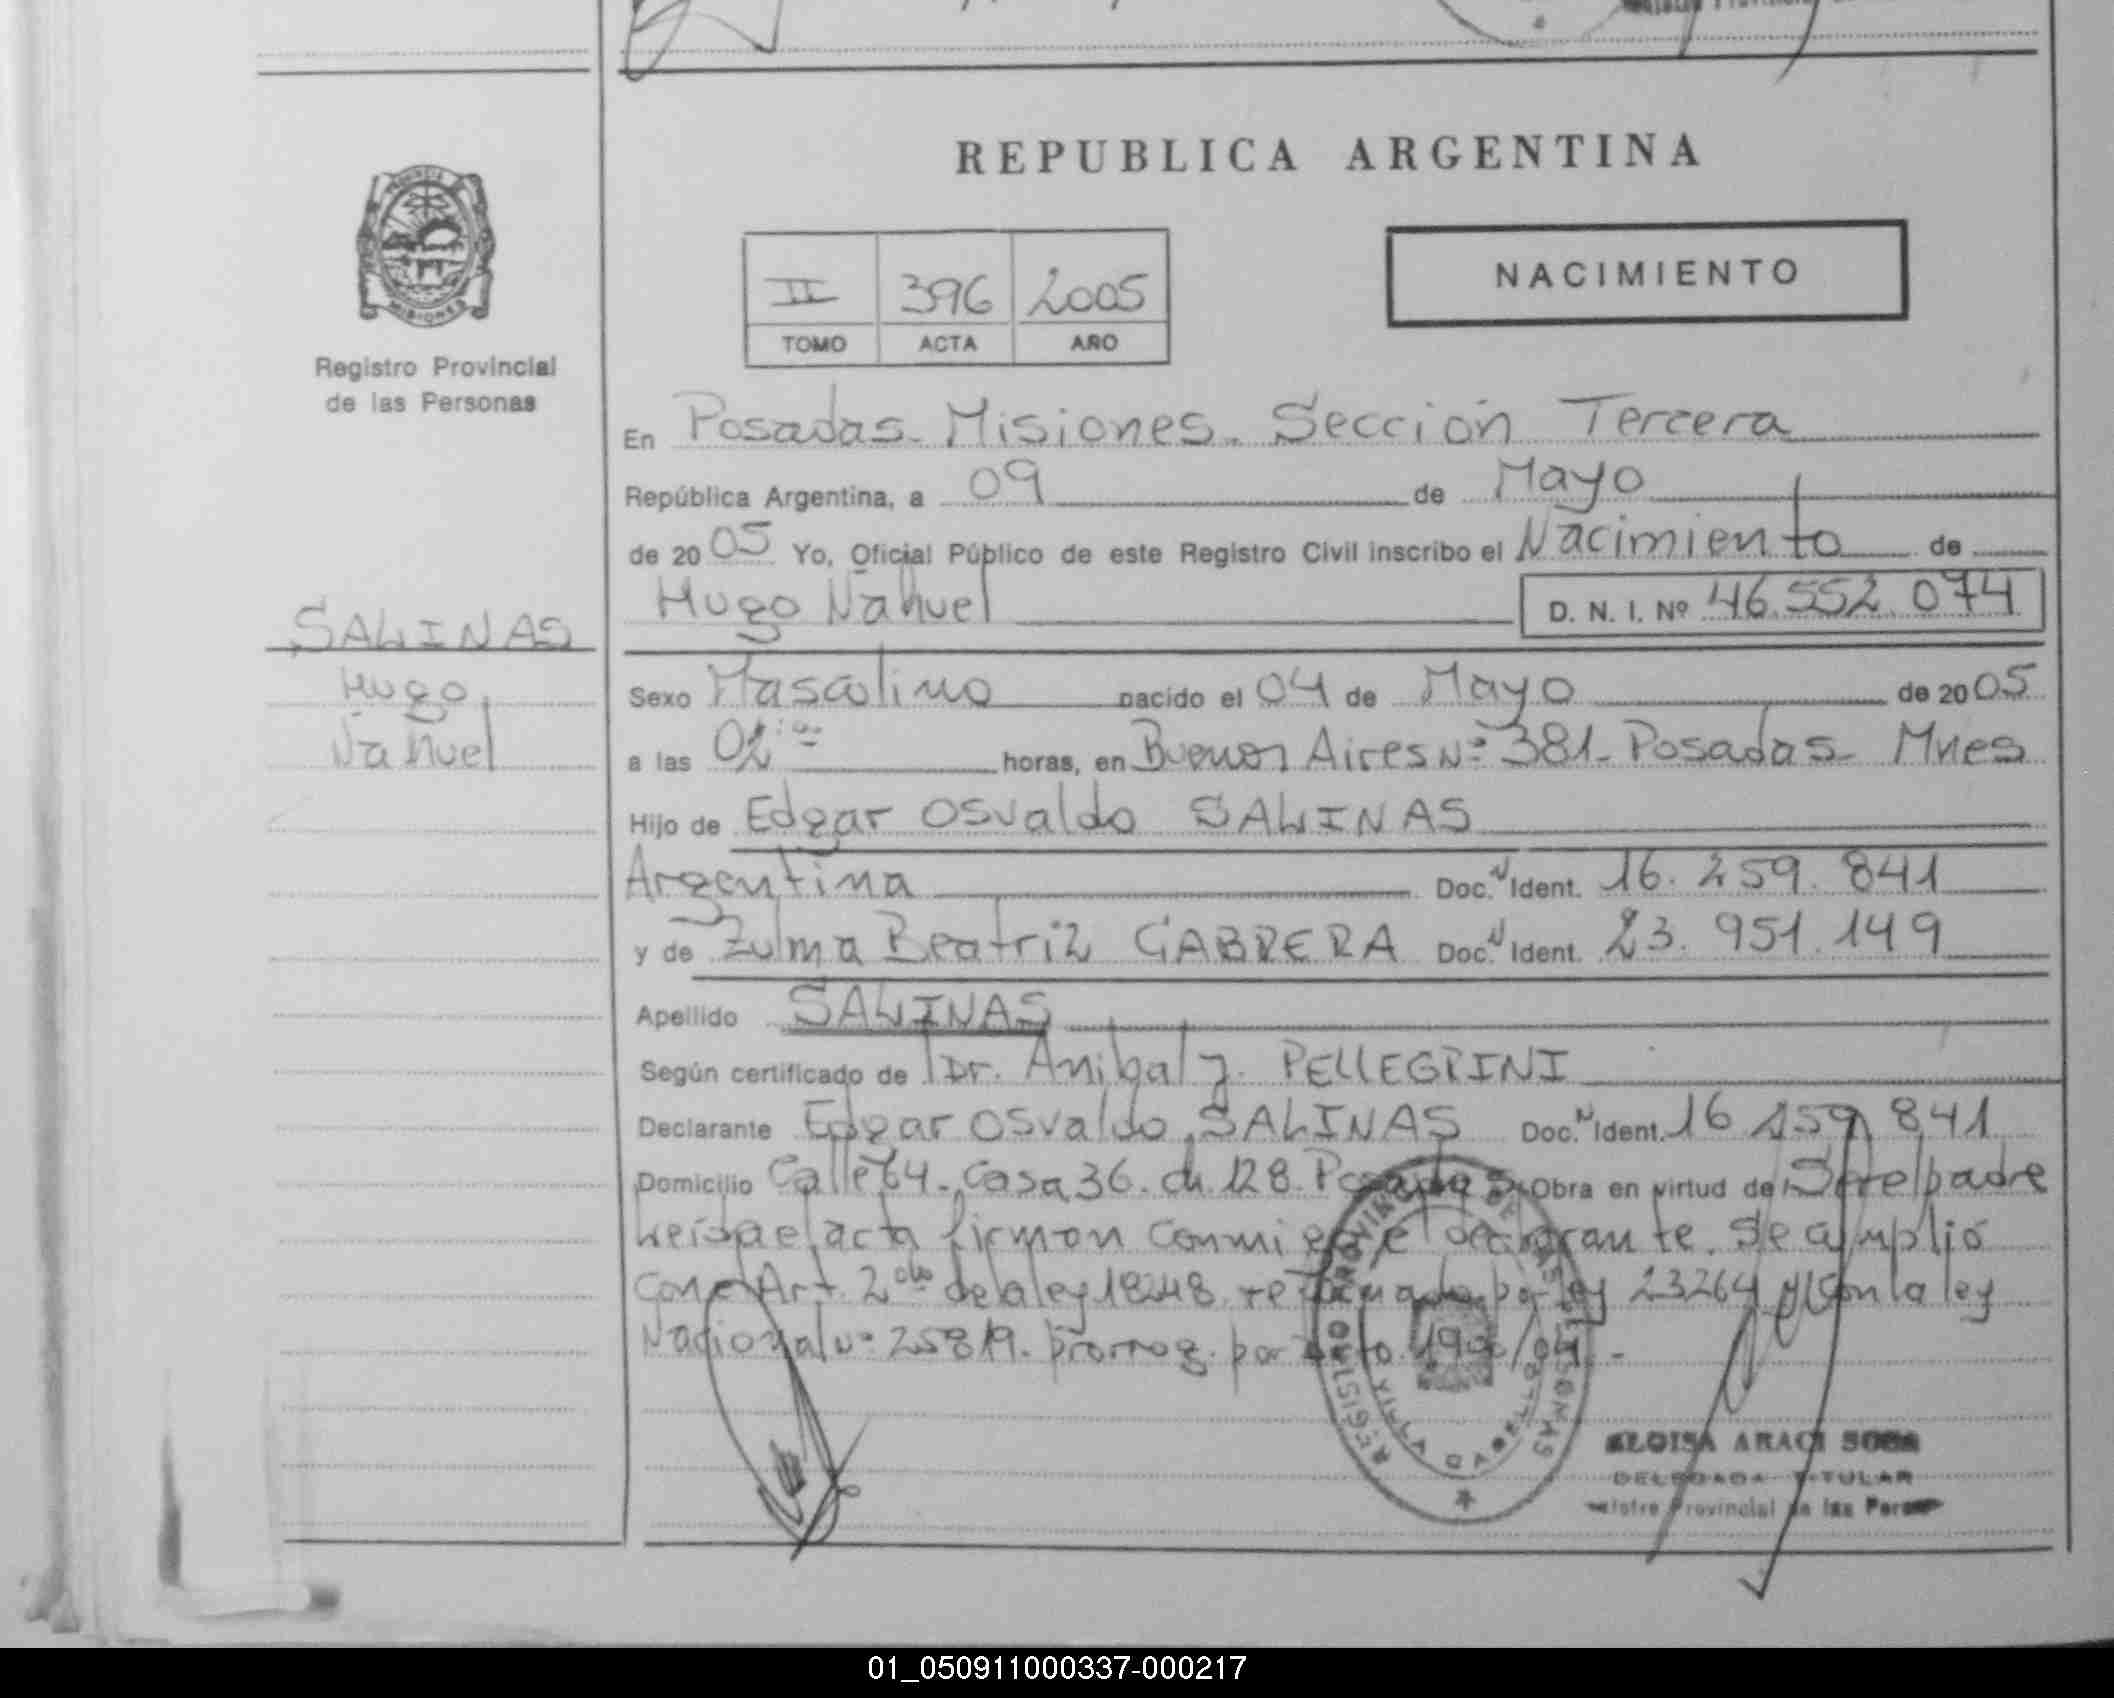 REPUBLICA ARGENTINA
PROVINCIA
MISIONES
Registro Provincial
de las Personas
NACIMIENTO
II 396 2005
TOMO ACTA AÑO
En Posadas - Misiones. Sección Tercera
República Argentina, a 09 de Mayo
de 2005 Yo, Oficial Público de este Registro Civil inscribo el Nacimiento de
Hugo Nahuel D. N. I. Nº 46.552.074
SALINAS
Hugo
Nahuel
Sexo Masculino nacido el 04 de Mayo de 2005
a las 02 horas, en Buenos Aires Nº 381 - Posadas - Mnes
Hijo de Edgar Osvaldo SALINAS
Argentina Doc. N Ident. 16.259.841
y de Zulma Beatriz CABRERA Doc. N Ident. 23.951.149
Apellido SALINAS
Según certificado de Dr. Anibal J. PELLEGRINI
Declarante Edgar Osvaldo SALINAS Doc. N Ident. 16 259 841
Domicilio Calle 64 - Casa 36 - ch. 128. Posadas Obra en virtud de Ser el padre
Leida el acta firman conmigo el declarante. Se amplió
con el Art. 2do de la ley 18248 reformado por ley 23264 y con la ley
Nacional Nº 25819. prorrog. por Dcto.
REGISTRO PROVINCIAL DE LAS PERSONAS
VILLA CABELLO
ELOISA ARACI SOSA
DELEGADA TITULAR
Registro Provincial de las Personas
01_050911000337-000217